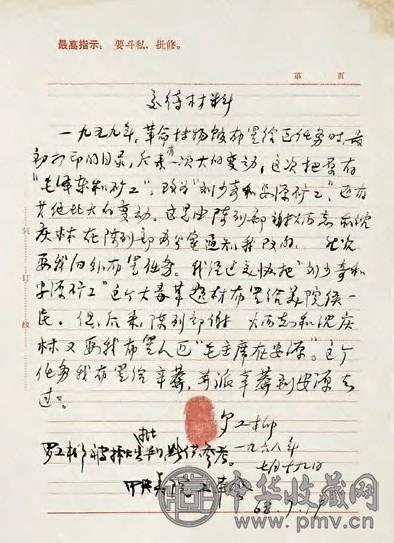 最高指示：要斗私，批修。
第 頁
交待材料
一九五九年，革命博物馆布置给画任务时，最
初打印的目录，后来有一次大的变动，这次把原有
“毛泽东和矿工”，改为“刘少奇和安源矿工”，还有
其他比大的变动。这是由陈列部
庆林在陈列部办公室通知我改的，
要我向外布置任务。我经过文协把“刘少奇和
安源矿工”这个大毒草题材布置给美院侯一
民。但后来陈列部谢 和沈庆
林又要我布置人画“毛主席在安源”。这个
任务我布置给辛莽，并派辛莽到安源去
过。
罗工柳
一九六八年
七月十九日
罗工柳 供参考。
68.7.19
装订线
中华收藏网
www.pmv.cn